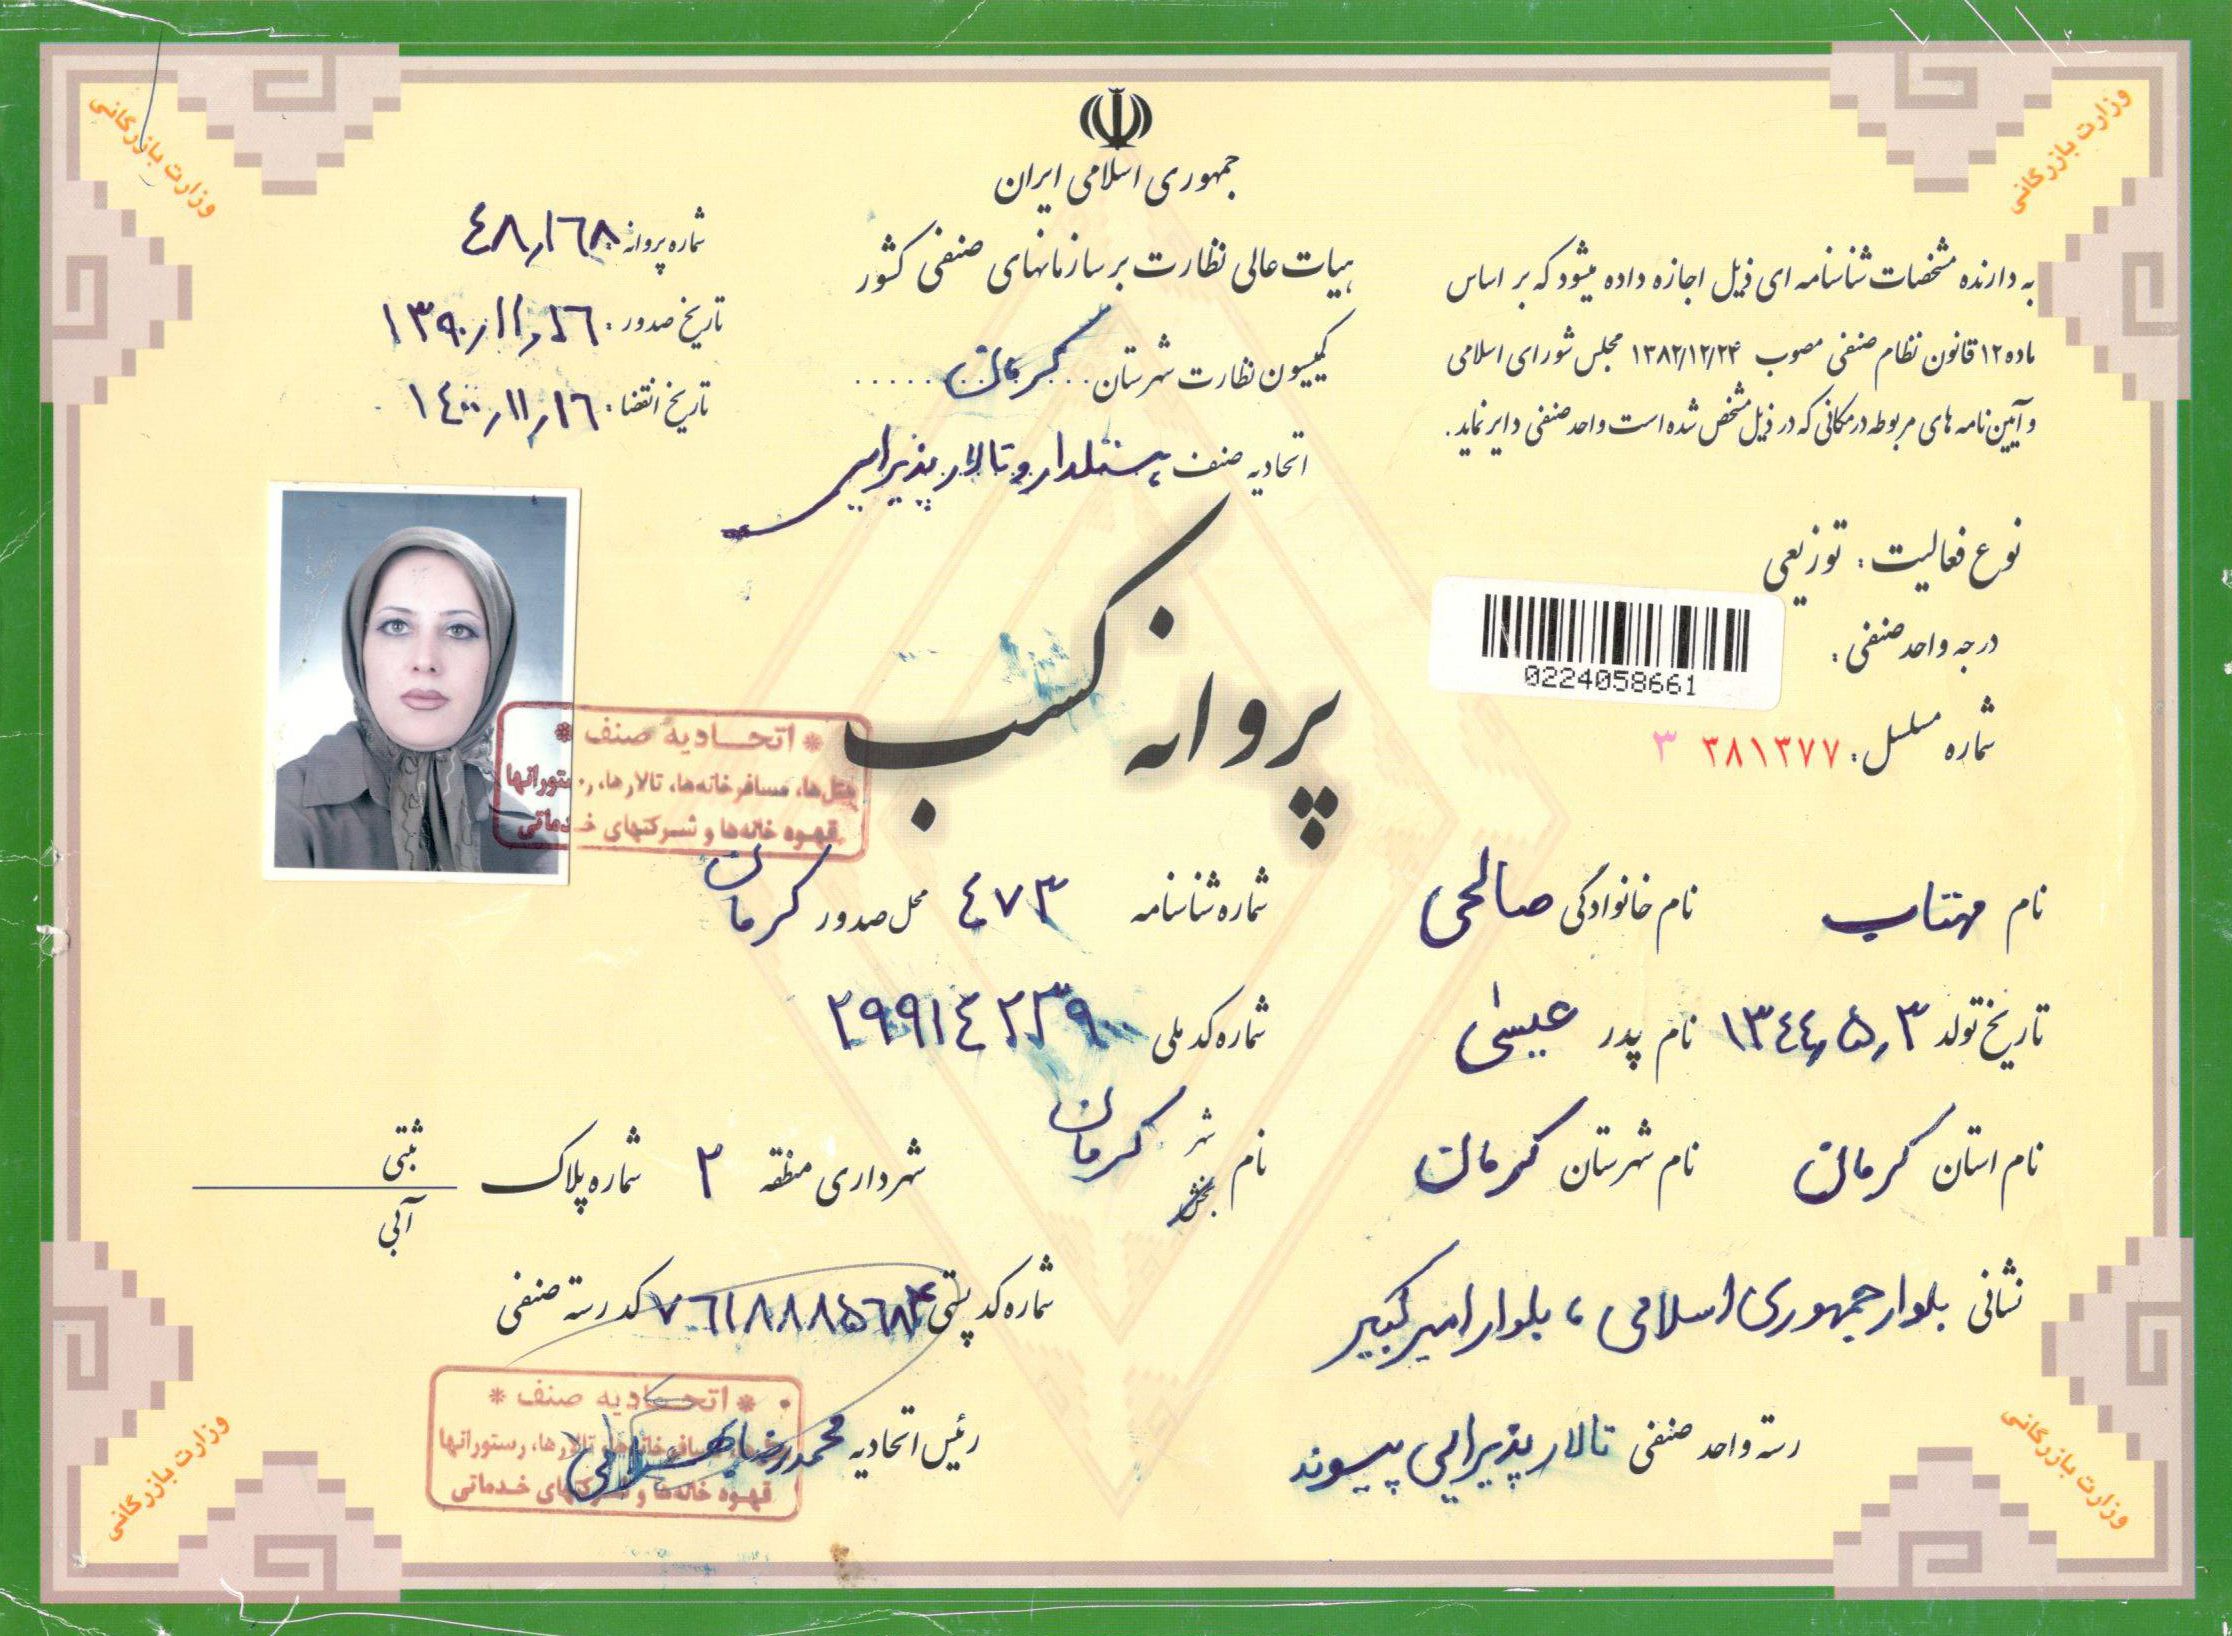 جمهوری اسلامی ایران
هیات عالی نظارت بر سازمانهای صنفی کشور
کمیسیون نظارت شهرستان کرمان
اتحادیه صنف هتلدار و تالار پذیرایی
شماره پروانه: ٤٨٫١٦٨
تاریخ صدور: ١٣٩٠٫١١٫١٦
تاریخ انقضا: ١٤٠٠٫١١٫١٦
به دارنده مشخصات شناسنامه ای ذیل اجازه داده میشود که بر اساس
ماده ۱۲ قانون نظام صنفی مصوب ۱۳۸۲/۱۲/۲۴ مجلس شورای اسلامی
و آیین نامه های مربوطه در مکانی که در ذیل مشخص شده است واحد صنفی دایر نماید.
نوع فعالیت: توزیعی
درجه واحد صنفی:
0224058661
شماره مسلسل: ۳۸۱۳۷۷ ۳
پروانه کسب
اتحادیه صنف
هتل‌ها، مسافرخانه‌ها، تالارها، رستورانها
قهوه خانه‌ها و شرکتهای خدماتی
نام مهتاب نام خانوادگی صالحی شماره شناسنامه ٤٧٣ محل صدور کرمان
تاریخ تولد ١٣٤٤٫٥٫٣ نام پدر عیسی شماره کد ملی ٢٩٩١٤٢٣٩٠٠
نام استان کرمان نام شهرستان کرمان نام شهر بخش کرمان شهرداری منطقه ٢ شماره پلاک ثبتی آبی
نشانی بلوار جمهوری اسلامی، بلوار امیرکبیر شماره کد پستی کد رسته صنفی
رسته واحد صنفی تالار پذیرایی پیوند رئیس اتحادیه محمدرضا
اتحادیه صنف
هتل‌ها، مسافرخانه‌ها، تالارها، رستورانها
قهوه خانه‌ها و شرکتهای خدماتی
وزارت بازرگانی
وزارت بازرگانی
وزارت بازرگانی
وزارت بازرگانی